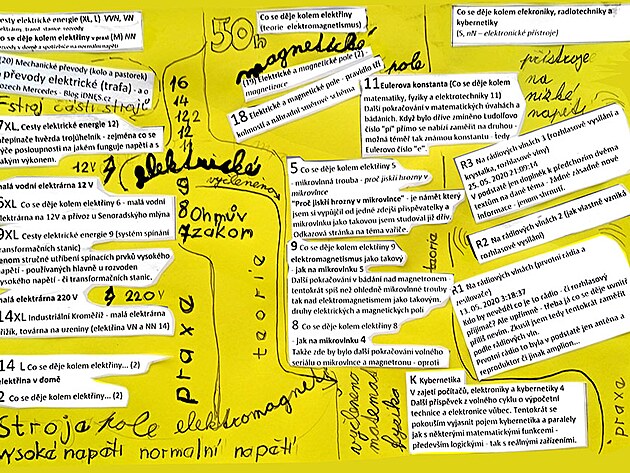 cesty elektrické energie (XL, L) VVN, VN
elektrárny, transf. stanice, rozvody
Co se děje kolem elektřiny v praxi (M) NN
rozvody v domě a spotřebiče na normální napětí
(20) Mechanické převody (kolo a pastorek)
o převody elektrické (trafa) - a o
vozech Mercedes - Blog iDNES.cz
stroj části strojů
7XL, Cesty elektrické energie 12)
přepínače hvězda trojúhelník - zejména co se
týče posloupnosti na jakém funguje napětí a s
jakým výkonem.
12V
malá vodní elektrárna 12 V
5XL Co se děje kolem elektřiny 6 - malá vodní
elektrárna na 12V a přívoz u Senoradského mlýna
9XL Cesty elektrické energie 9 (systém spínání
transformačních stanic)
Jenom stručné utřídění spínacích prvků vysokého
napětí - používaných hlavně u rozvoden
vysokého napětí - či transformačních stanic.
malá elektrárna 220 V
220V
14XL Industriální Kroměříž - malá elektrárna
Křižík, továrna na uzeniny (elektřina VN a NN 14)
14 L Co se děje kolem elektřiny... (2)
elektřina v domě
2 Co se děje kolem elektřiny... (2)
Stroja kole elektromagnet
vysoká napáti normalní napátí
praxe
50h
16
14
12,2
11
elektrické
vyčleneno
9
8
7
Ohmův
zákon
teorie
Co se děje kolem elektřiny
(teorie elektromagnetismu)
magnetické
pole
(19) Elektrické a magnetické pole (2) -
magnetizace
18 Elektrické a magnetické pole - pravidlo tří
kolmostí a náhradní vnitřně schéma
11 Eulerova konstanta (Co se děje kolem
matematiky, fyziky a elektrotechniky 11)
Další pokračování v matematických úvahách a
bádáních. Když bylo dříve zmíněno Ludolfovo
číslo "pí" přímo se nabízí zaměřit na druhou
možná téměř tak známou konstantu - tedy
Eulerovo číslo "e".
5 Co se děje kolem elektřiny 5
- mikrovlnná trouba - proč jiskří hrozny v
mikrovlnce
"Proč jiskří hrozny v mikrovlnce" - je námět který
jsem si vypůjčil od jedné zdejší přispěvatelky a
mikrovlnku jako takovou jsem studoval již dřív.
Odkazová stránka na téma vařiče.
9 Co se děje kolem elektřiny 9
elektromagnetismus jako takový
- jak na mikrovlnku 5
Další pokračování v bádání nad magnetronem
tentokrát spíš než ohledně mikrovlnné trouby
tak nad elektromagnetismem jako takovým,
druhy elektrických a magnetických polí
8 Co se děje kolem elektřiny 8
- jak na mikrovlnku 4
Takže zde by bylo další pokračování volného
seriálu o mikrovlnce a magnetronu - oproti
vyčleneno
matemat
fyzika
teorie
Co se děje kolem elekroniky, radiotechniky a
kybernetiky
(S, nN – elektronické přístroje)
přístroje
na
nízké
napětí
R3 Na rádiových vlnách 3 (rozhlasové vysílání a
krystalka, rozhlasové vlny)
25. 05. 2020 21:09:14
V podstatě jen doplněk k předchozím dvěma
textům na dané téma - žádné zásadně nové
informace - jenom shrnutí.
R2 Na rádiových vlnách 2 (jak vlastně vzniká
rozhlasové vysílání)
R1 Na rádiových vlnách (první rádia a
vysílače)
13. 05. 2020 3:18:37
Kdo by nevěděl co je to rádio - či rozhlasový
přijímač? Ale upřímně - třeba já co se děje uvnitř
příliš nevím. Zkusil jsem tedy tentokrát zaměřit
podle rádiových vln.
První rádio to byla v podstatě jen anténa a
reproduktor či jinak amplion...
K Kybernetika
V zajetí počítačů, elektroniky a kybernetiky 4
Další příspěvek z volného cyklu o výpočetní
technice a elektronice vůbec. Tentokrát se
pokouším vyjasnit pojem kybernetika a paralely
jak s některými matematickými funkcemi -
především logickými - tak s reálnými zařízeními.
praxe